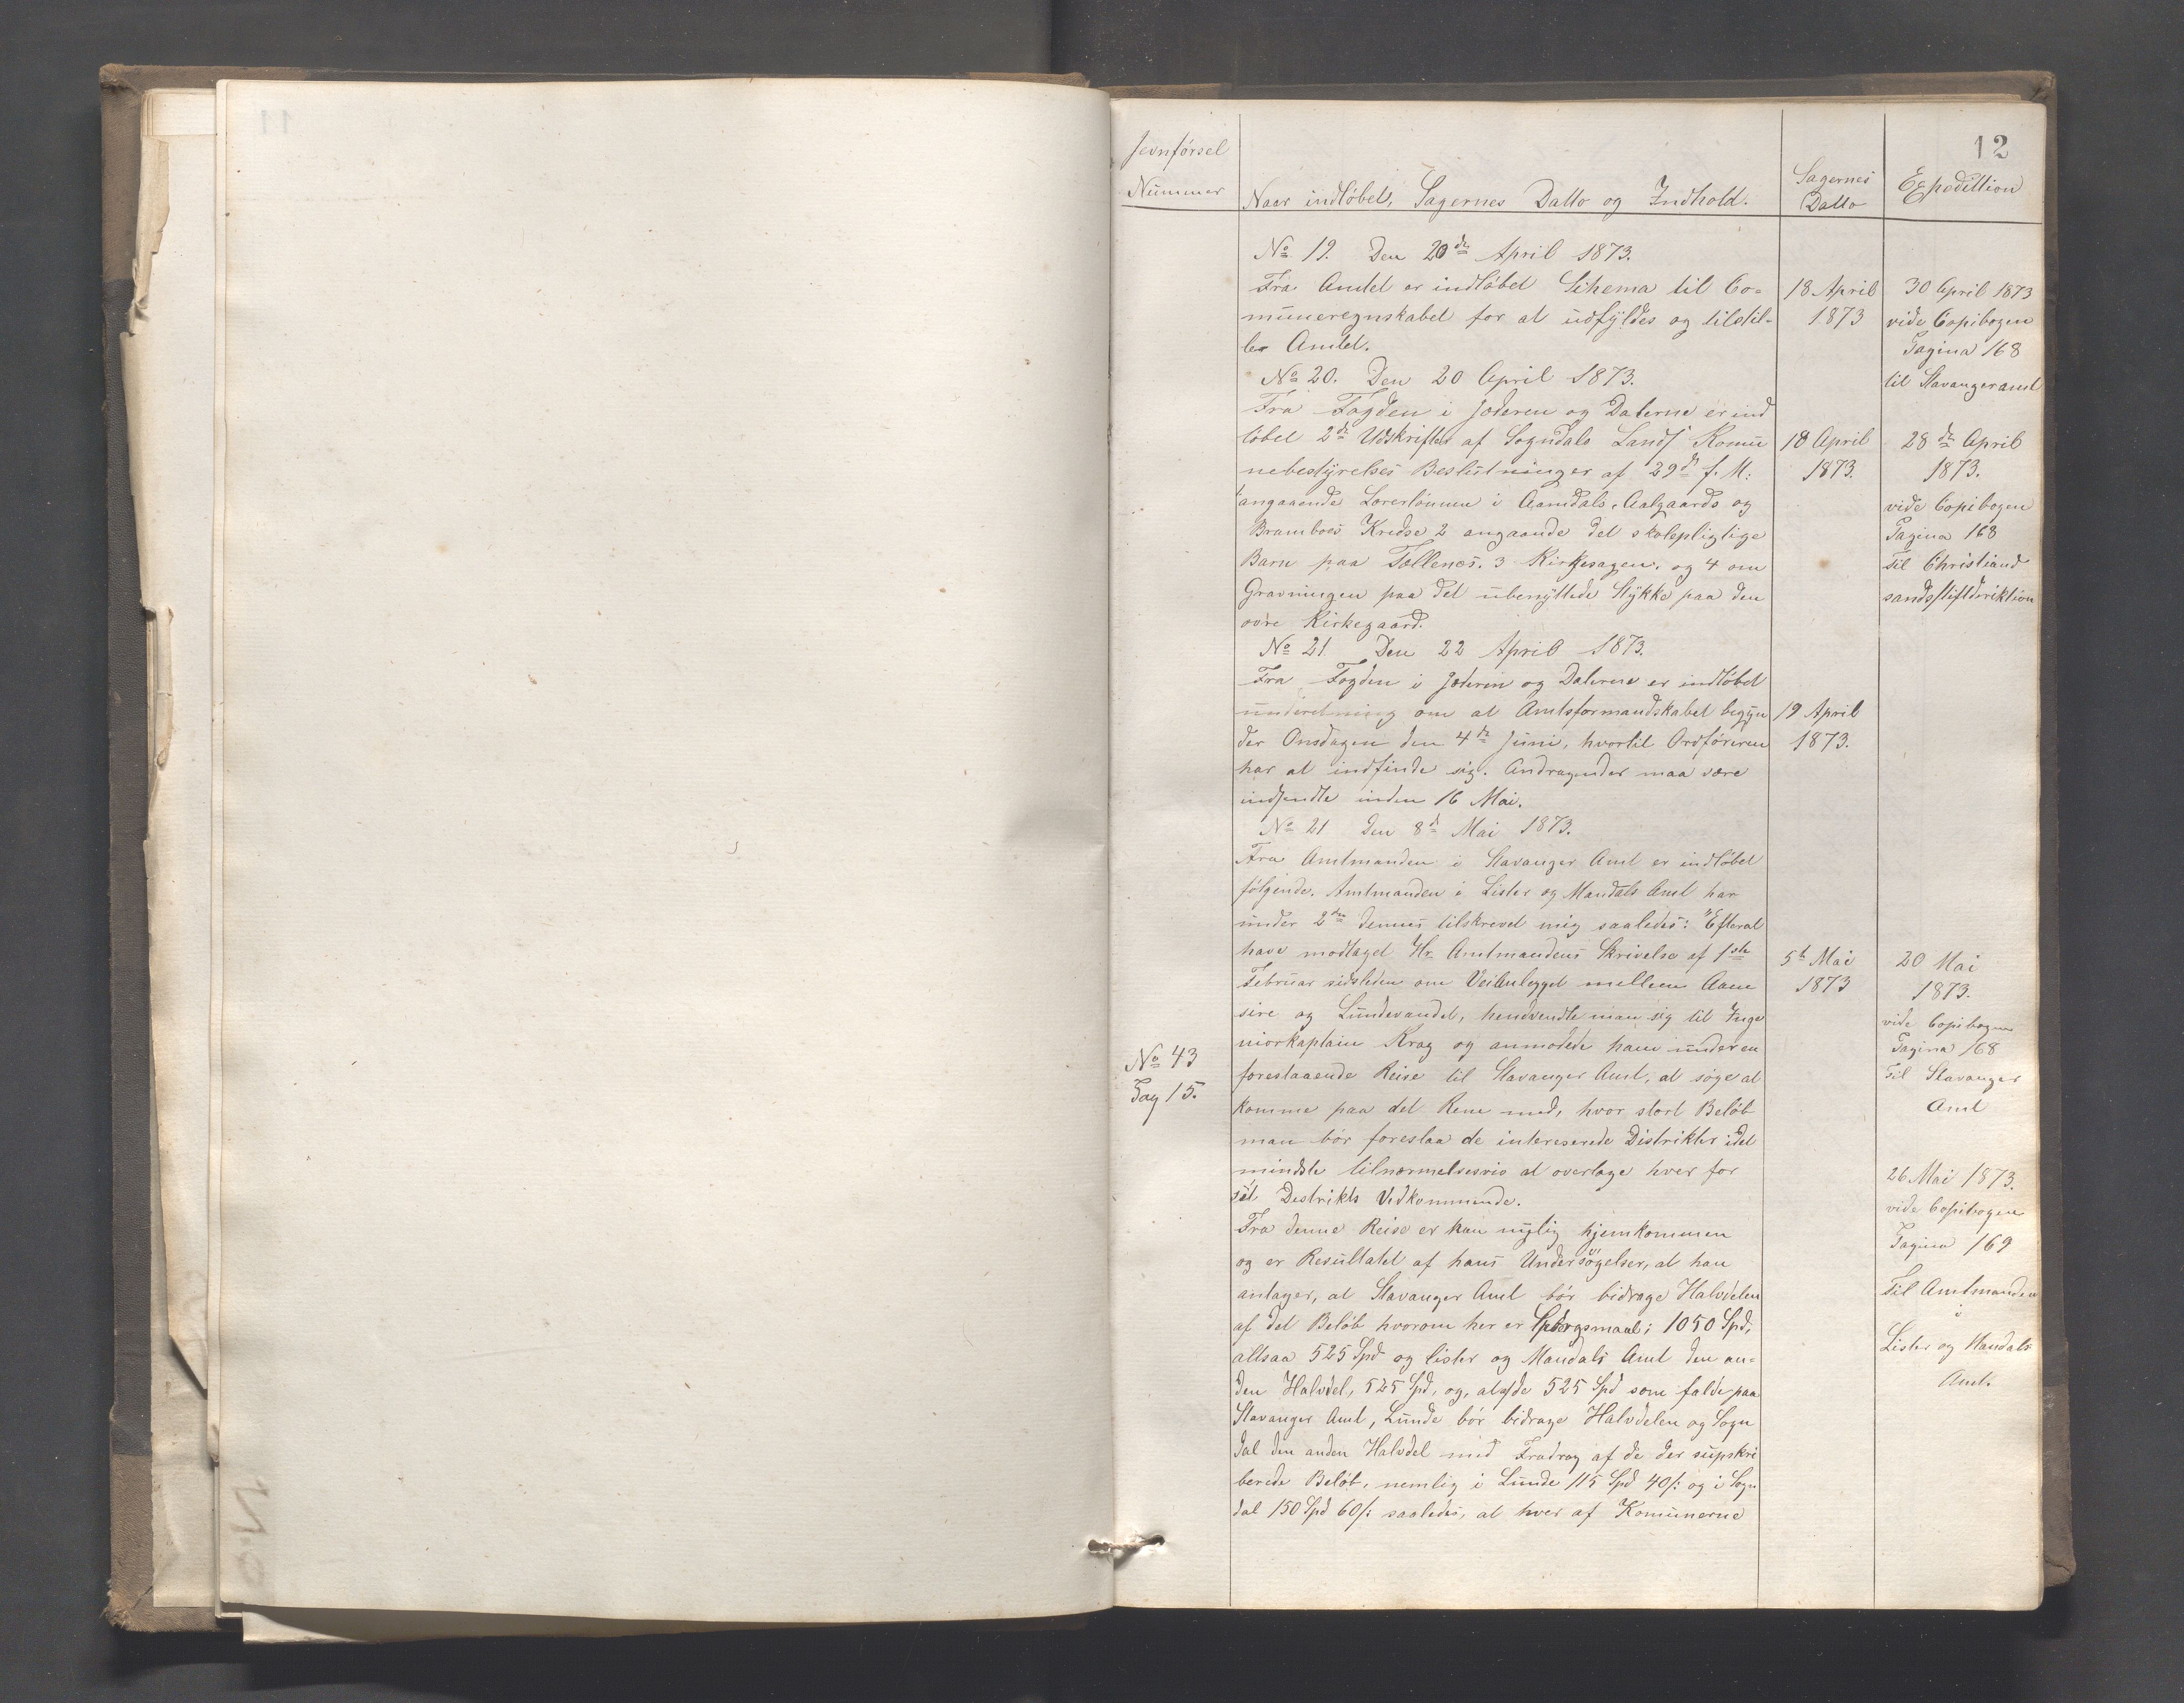 12
Jevnførsel
Nummer
Naar indløbet, Sagernes Datto og Indhold.
Sagernes
Datto
Expedittion
No 19. Den 20de April 1873.
Fra Amtet er indløbet Schema til Co=
muneregnskabet for at udfyldes og tilstil=
les Amtet.
18 April
1873
30 April 1873
vide Copibogen
Pagina 168
til Stavanger amt
No 20. Den 20 April 1873.
Fra Fogden i Jæderen og Dalerne er ind
løbet 2de Udskrifter af Sogndals Lands Komu
nebestyrelses Beslutninger af 29de f. M:
1 angaaende Lærerlønnen i Aamdals, Aalgaards og
Bramboes Kredse 2 angaaende det skolepligtige
Barn paa Tollenæs. 3 Kirkesagen. og 4 om
Gravningen paa det ubenyttede Stykke paa den
øvre Kirkegaard.
18 April
1873.
28de April
1873.
vide Copibogen
Pagina 168
Til Christiand
sandsstiftdiriktion
No 21. Den 22 April 1873.
Fra Fogden i Jæderen og Dalerne er indløbet
underetning om at Amtsformandskabet begyn
der Onsdagen den 4de Juni, hvortil Ordføreren
har at indfinde sig. Andragender maa være
indsendte inden 16 Mai.
19 April
1873.
No 21 Den 8d Mai 1873.
Fra Amtmanden i Stavanger Amt er indløbet
følgende. Amtmanden i Lister og Mandals Amt har
under 2den dennes tilskrevet mig saaledes: "Efterat
have modtaget Hr. Amtmandens Skrivelse af 1ste
Februar sidsleden om Veianlegget mellem Aaen
sire og Lundevandet, hendvendte man sig til Inge
niørkaptain Krag og anmodede ham under en
forestaaende Reise til Stavanger Amt, at søge at
komme paa det Rene med, hvor stort Beløb
man bør foreslaa de intereserede Distrikter idet
mindste tilnærmelsesvis at overtage hver for
sit Destrikts Vedkommende.
Fra denne Reise er han nylig hjemkommen
og er Resultatet af hans Undersøgelser, at han
antager, at Stavanger Amt bør bidrage Halvdelen
af det Beløb hvorom her er Spørgsmaal; 1050 Spd,
altsaa 525 Spd og Lister og Mandals Amt den an=
den Halvdel, 525 Spd, og, at de 525 Spd som falde paa
Stavanger Amt, Lunde bør bidrage Halvdelen og Sogn
dal den anden Halvdel med Fradrag af de der supskri
berede Beløb, nemlig i Lunde 115 Spd 40/: og i Sogn
dal 150 Spd 60/: saaledes, at hver af Komunerne
No 43
Pag 15.
5t Mai
1873
20 Mai
1873.
vide Copibogen
Pagina 168
Til Stavanger
Amt
26 Mai 1873.
vide Copibogen
Pagina 169
Til Amtmanden
i
Lister og Mandals
Amt.